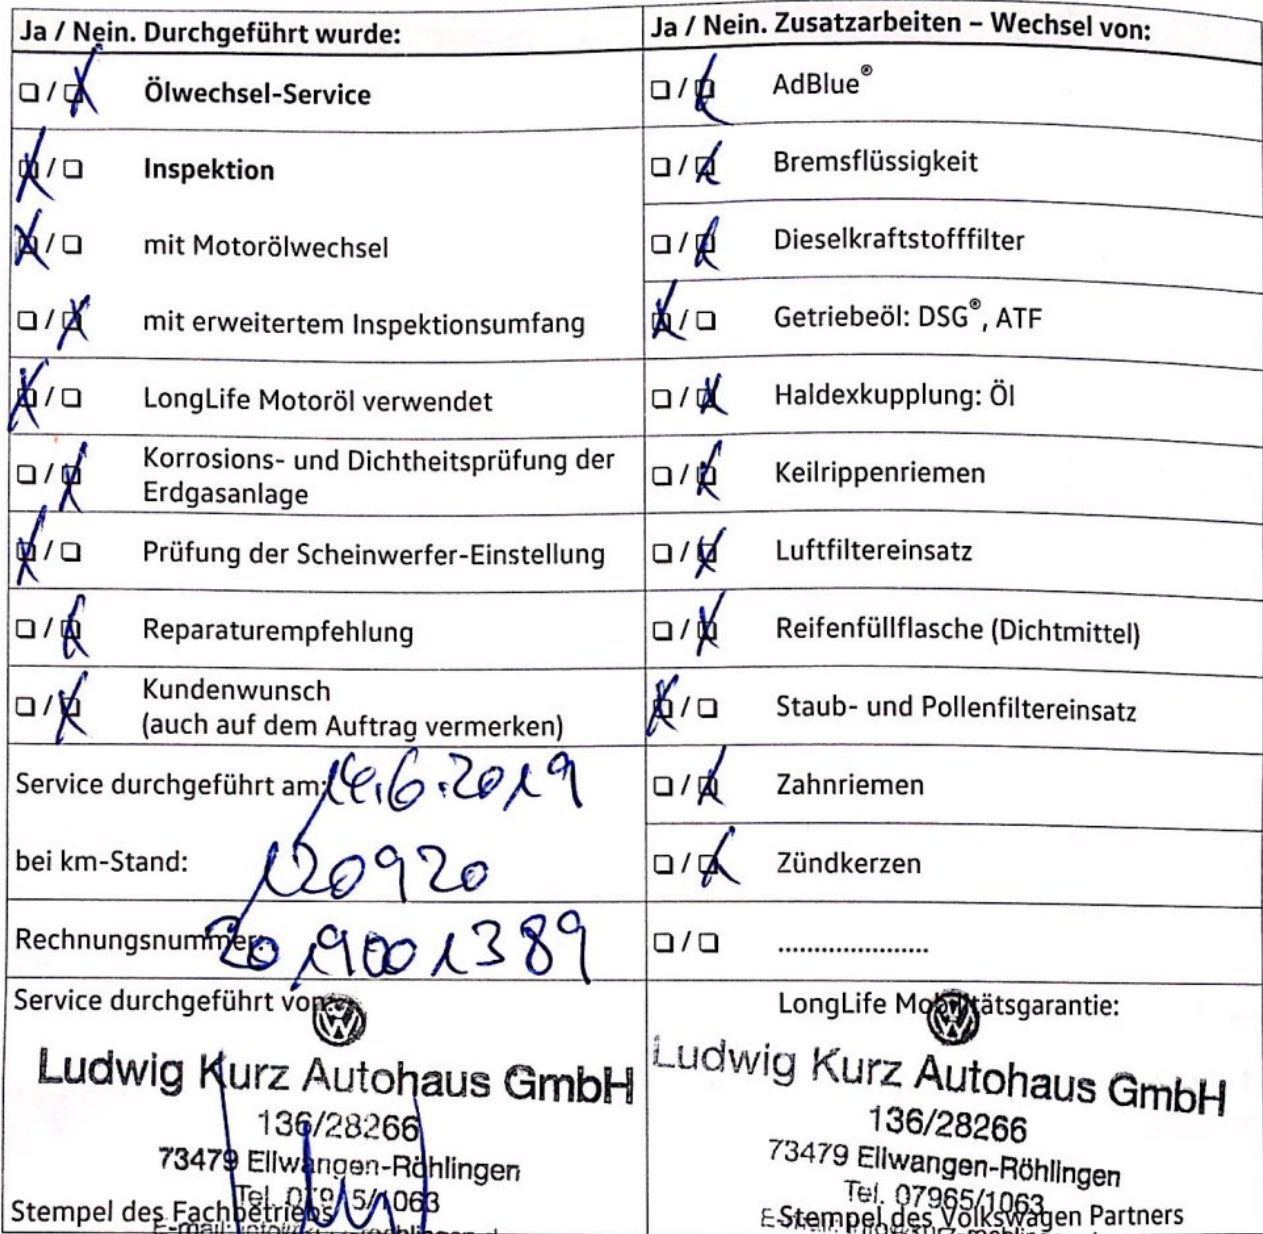 Ja / Nein. Durchgeführt wurde:
Ölwechsel-Service
Inspektion
mit Motorölwechsel
mit erweitertem Inspektionsumfang
LongLife Motoröl verwendet
Korrosions- und Dichtheitsprüfung der
Erdgasanlage
Prüfung der Scheinwerfer-Einstellung
Reparaturempfehlung
Kundenwunsch
(auch auf dem Auftrag vermerken)
Service durchgeführt am: 14.6.2019
bei km-Stand: 120920
Rechnungsnummer: 2019001389
Service durchgeführt von:
Ludwig Kurz Autohaus GmbH
136/28266
73479 Ellwangen-Röhlingen
Tel. 07965/1063
Stempel des Fachbetriebs
Ja / Nein. Zusatzarbeiten – Wechsel von:
AdBlue®
Bremsflüssigkeit
Dieselkraftstofffilter
Getriebeöl: DSG®, ATF
Haldexkupplung: Öl
Keilrippenriemen
Luftfiltereinsatz
Reifenfüllflasche (Dichtmittel)
Staub- und Pollenfiltereinsatz
Zahnriemen
Zündkerzen
......................
LongLife Mobilitätsgarantie:
Ludwig Kurz Autohaus GmbH
136/28266
73479 Ellwangen-Röhlingen
Tel. 07965/1063
Stempel des Volkswagen Partners